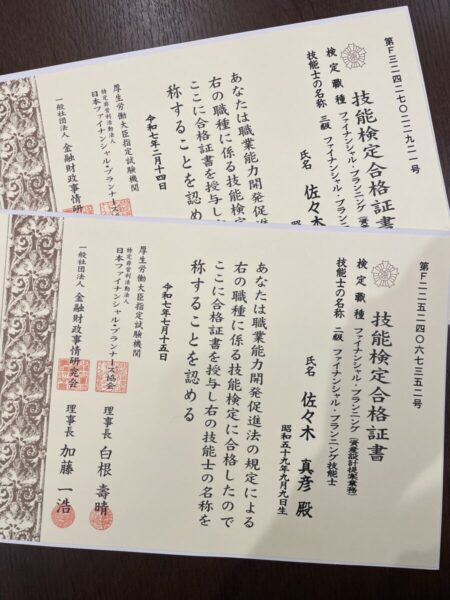 第F三二四二七〇二二九二一号
技能検定合格証書
検定職種 ファイナンシャル・プランニング
技能士の名称 三級 ファイナンシャル・プランニ
氏名 佐々木
昭
あなたは職業能力開発促進
右の職種に係る技能検定
ここに合格証書を授与し
称することを認め
令和七年二月十四日
厚生労働大臣指定試験機関
特定非営利活動法人
日本ファイナンシャル・プランナーズ協
一般社団法人 金融財政事情研
第F二二五二四〇六七三五二号
技能検定合格証書
検定職種 ファイナンシャル・プランニング(資産設計提案業務)
技能士の名称 二級 ファイナンシャル・プランニング技能士
氏名 佐々木 真彦 殿
昭和五十九年九月九日生
あなたは職業能力開発促進法の規定による
右の職種に係る技能検定に合格したので
ここに合格証書を授与し右の技能士の名称を
称することを認める
令和七年七月十五日
厚生労働大臣指定試験機関
特定非営利活動法人
日本ファイナンシャル・プランナーズ協会
理事長 白根 壽晴
一般社団法人 金融財政事情研究会
理事長 加藤 一浩